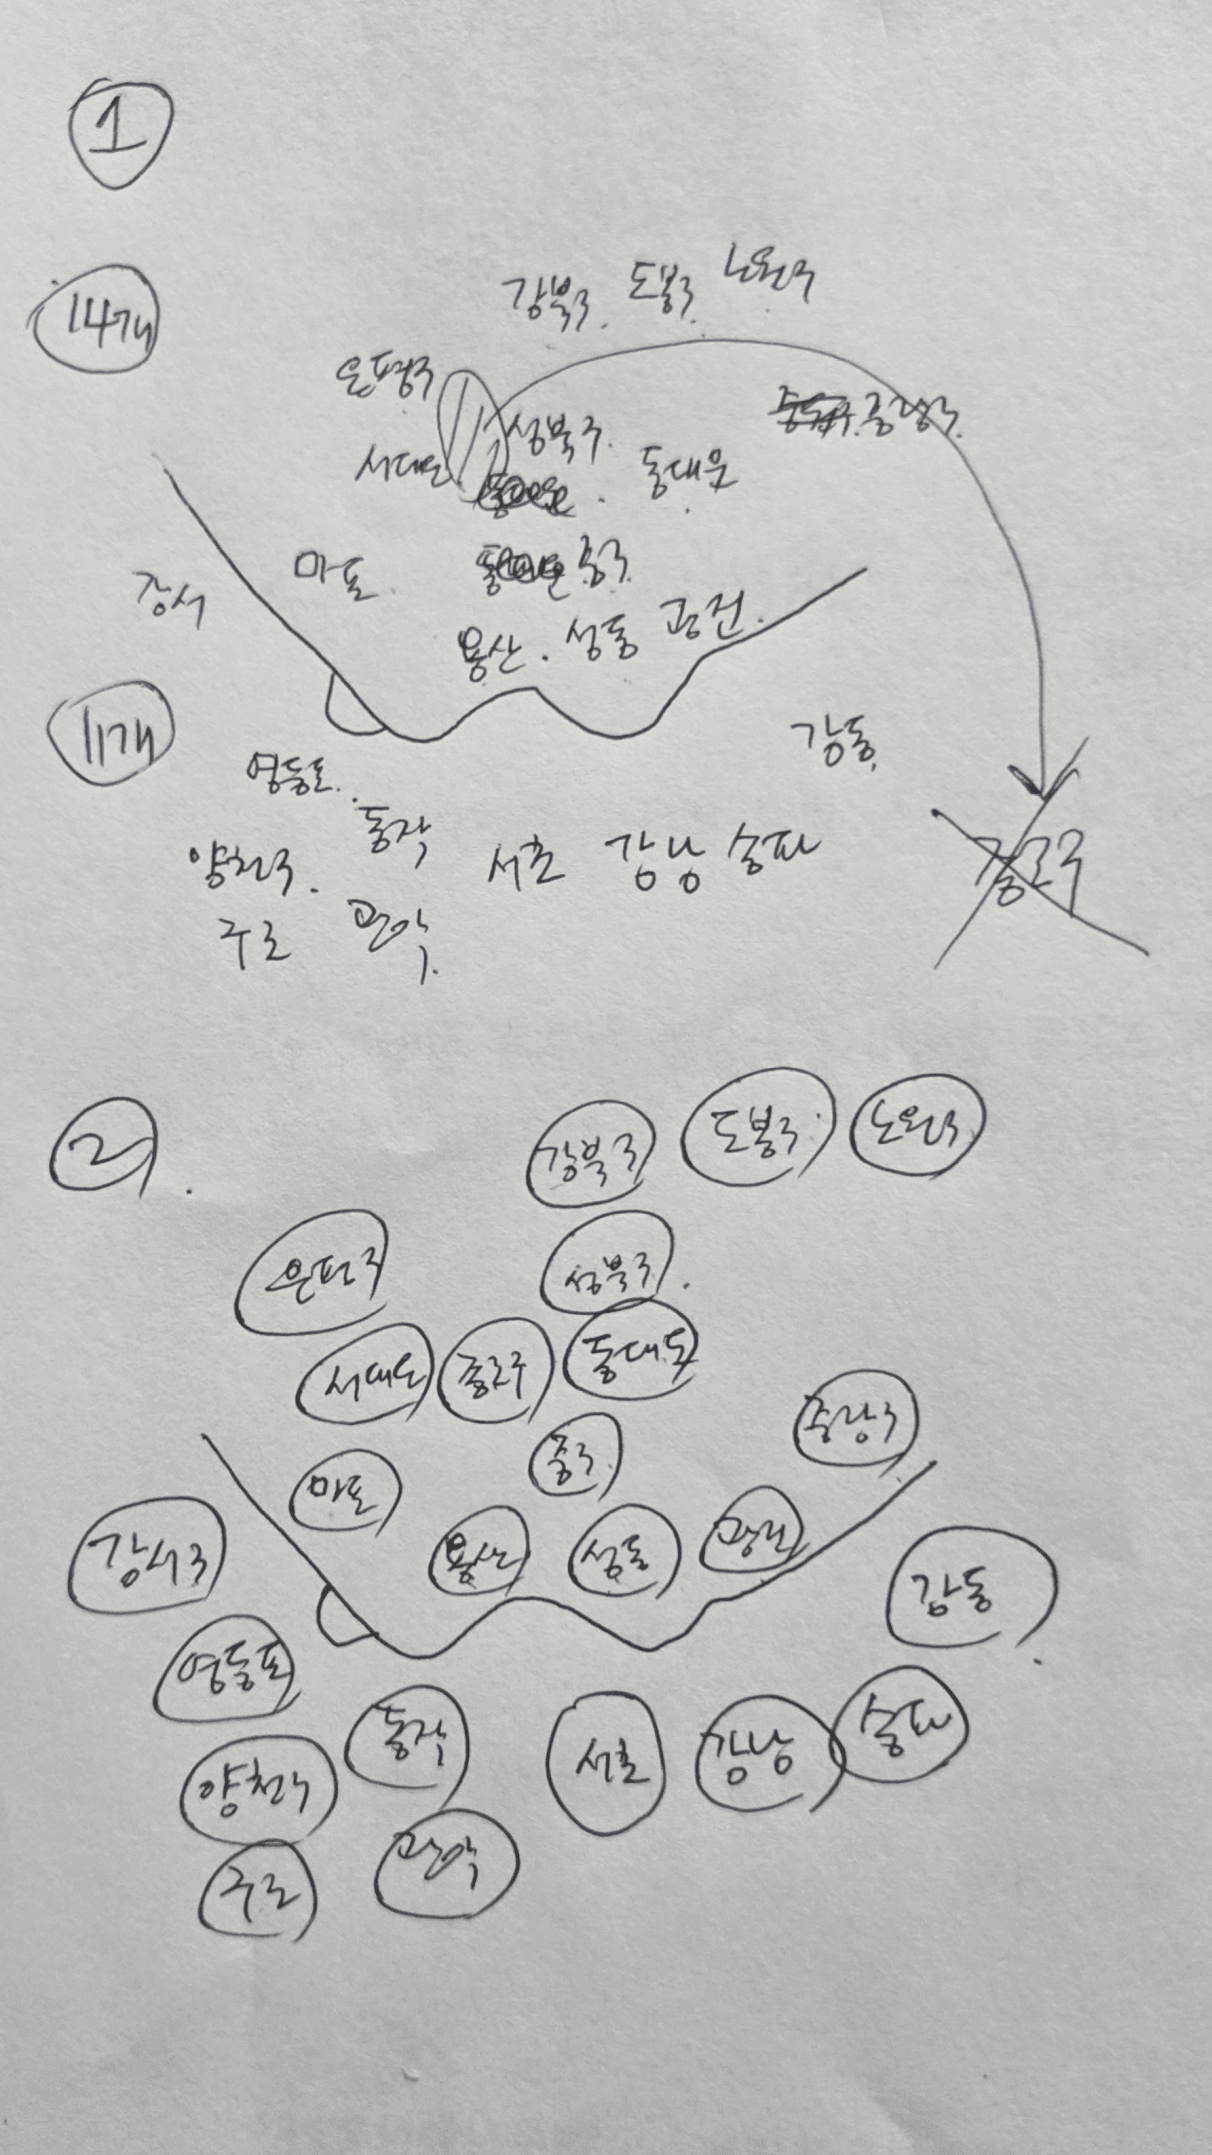 1
14개
강북구. 도봉구. 노원구
은평구
성북구.
중랑구.
서대문
동대문
마포
중구.
강서
용산. 성동 광진.
11개
강동.
영등포.
동작
양천구.
서초 강남 송파
종로구
구로 관악.
2.
강북구 도봉구. 노원구
은편구
성북구.
서대문 종로구 동대문
중랑구
마포
중구.
강서구
용산 성동 광진
강동.
영등포
동작
송파
서초 강남
양천구
관악
구로